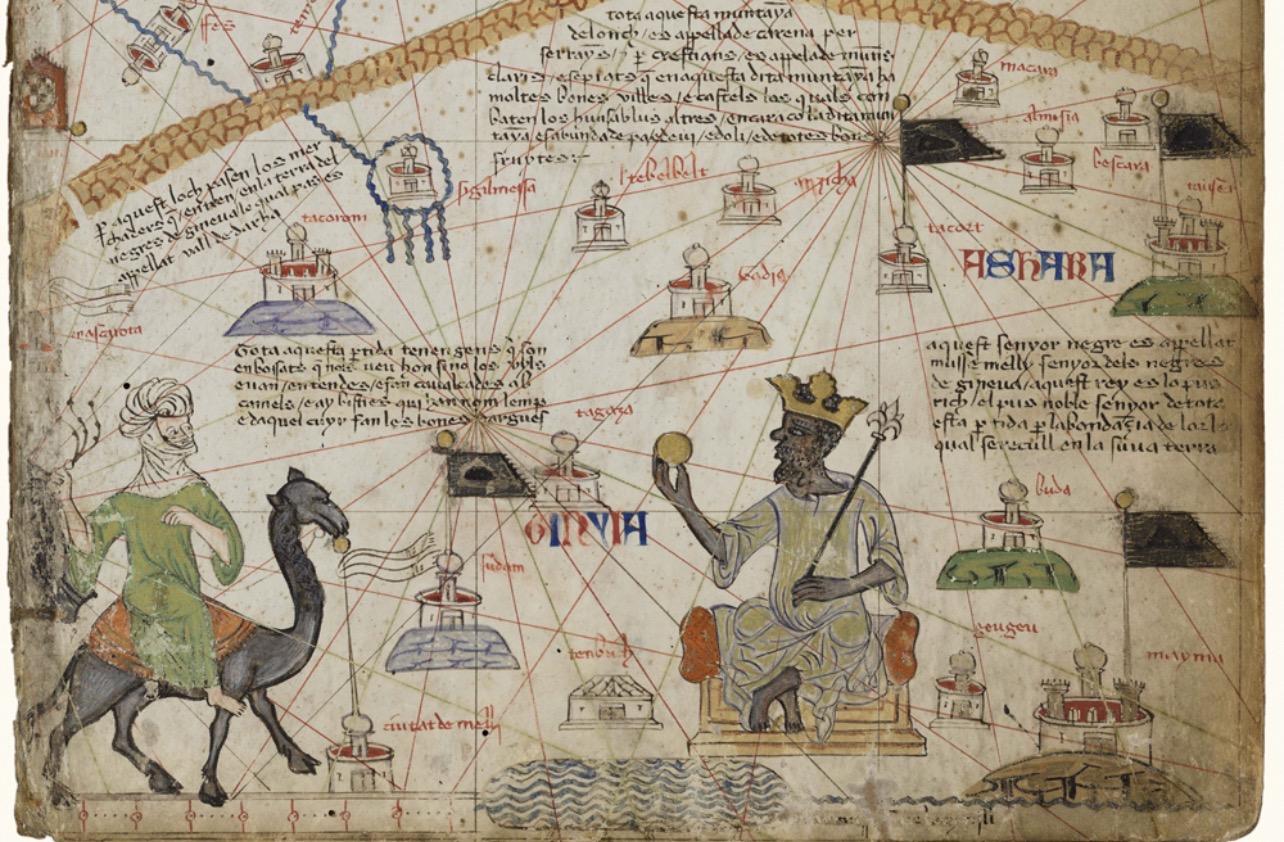 tota aquesta muntaya
de lonch / es appellade carena per
serrayns / e p crestians / es apelade muns
claris / e sepiats q en aquesta dita muntaya ha
moltes bones villes / e castels los quals con
baten los huns ab los altres / encara co la dita mun
taya es abundade de pa e de vi / e doli / e de totes bones
fruytes
P aquest loch pasen los mer
chaders q entren en la terra del
negres de Gineua lo qual pas es
appellat vall de darha
macara
almsia
bescara
sigilmessa
tacorom
tacort
ASHARA
Tota aquesta ptida tenen gens q son
enbossats q nols veu hom sino los uyls
e uan en tendes / e fan caualcades ab
camels / e ay bisties qui han nom lemp
e daquel cuyr fan los bones dargues
aquest senyor negre es appellat
musse melly senyor dels negres
de gineua / aquest rey es lo pus
rich / el pus noble senyor de tota
esta ptida p labondacia de lor lo
qual se recull en la suua terra
tagaza
GINVIA
sudam
tenbuch
ciutat de melli
buda
geugeu
mayma